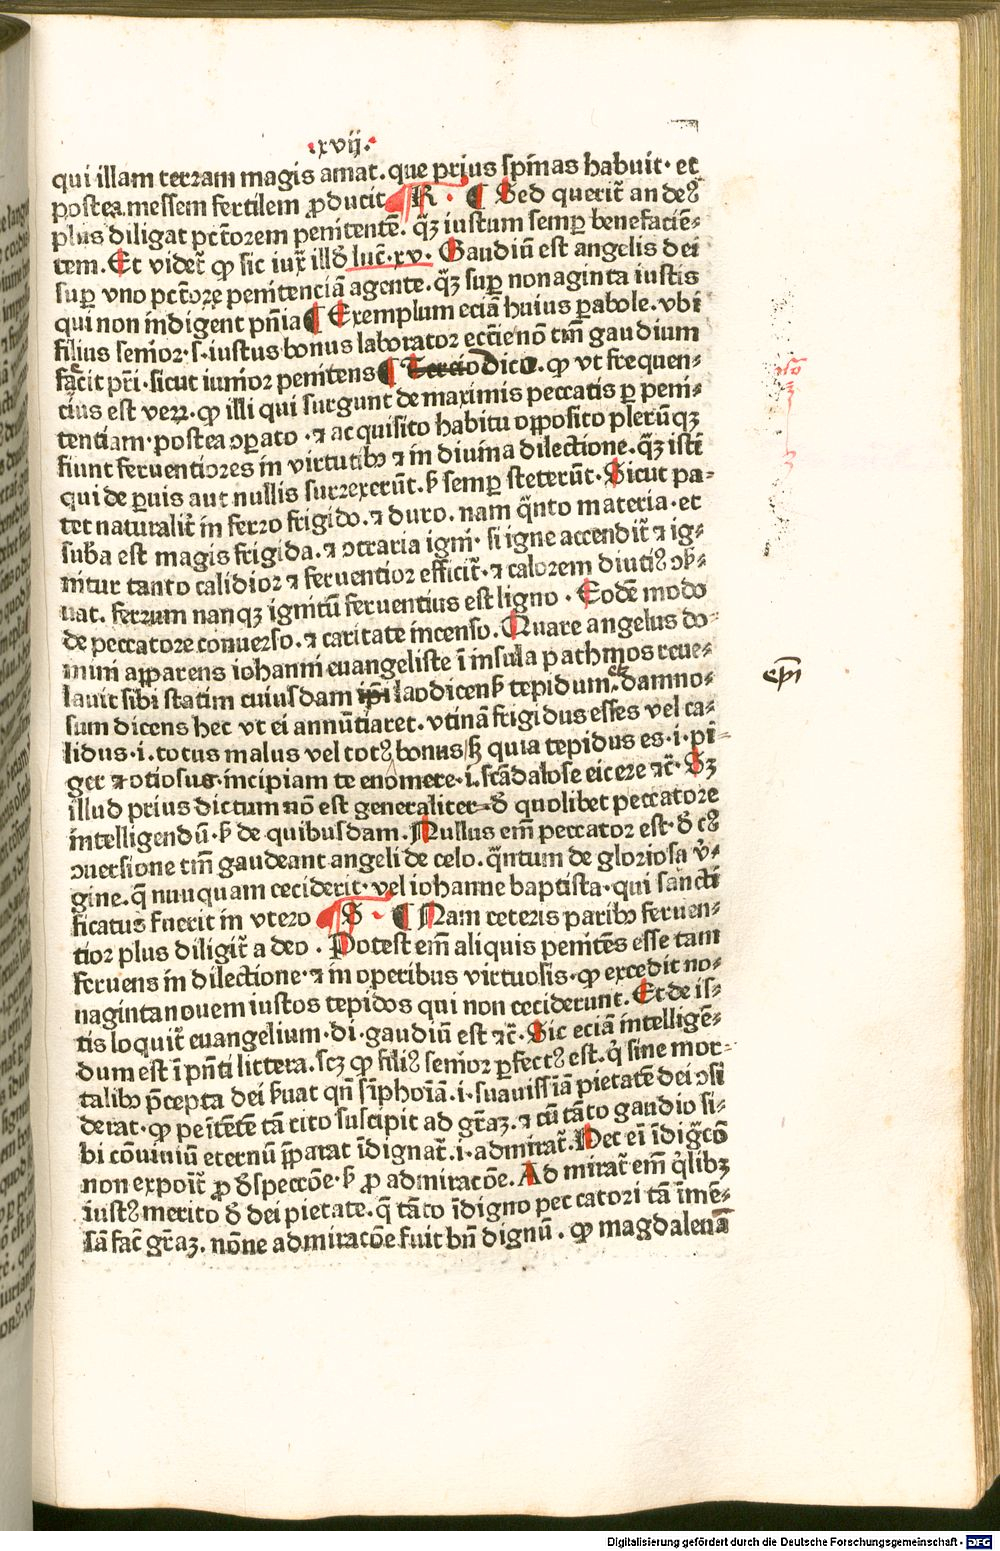 .xvij.
qui illam terram magis amat. que prius spīnas habuit. et
postea messem fertilem ꝓducit ¶ R . ¶ Sed querit᷑ an deꝰ
plus diligat pctōrem penitentē. q̄ꝫ iustum semꝑ benefaciē⸗
tem. Et videt᷑ ꝙ sic iux̄ illđ luc̄. xv. Gaudiū est angelis dei
suꝑ vno pctōrę penitenciā agente. q̄ꝫ suꝑ nonaginta iustis
qui non indigent pn̄ia ¶ Exemplum eciā huius ꝑabole. vbi
filius senior. s. iustus bonus laborator ecc̄ie nō tm̄ gaudium
facit pr̄i. sicut iunior penitens ¶ Tercio dico. ꝙ vt frequen⸗
cius est veꝝ. ꝙ illi qui surgunt de maximis peccatis ꝑ peni⸗
tentiam. postea oꝑato . ⁊ acquisito habitu opposito plerūqꝫ
fiunt feruentiores in virtutibꝰ ⁊ in diuina dilectione. q̄ꝫ isti
qui de ꝑuis aut nullis surrexerūt. ẜ semꝑ steterūt. Sicut pa⸗
tet naturalit᷑ in ferro frigido. ⁊ duro. nam q̄nto materia. et
suba est magis frigida. ⁊ ꝯtraria igni. si igne accendit᷑ ⁊ ig⸗
nitur tanto calidior ⁊ feruentior efficit᷑. ⁊ calorem diutiꝰ ꝯẜ⸗
uat. ferrum nanqꝫ ignitū feruentius est ligno . Eodē modo
de peccatore conuerso. ⁊ caritate incenso. Quare angelus do⸗
mini apparens iohanni euangeliste ī insula pathmos reue⸗
lauit sibi statim cuiusdam ip̄i laodicenẜ tepidum. et damno⸗
epī
sum dicens hec vt ei annūtiaret. vtinā frigidus esses vel ca⸗
lidus. i. totus malus vel totꝰ bonus ẜꝫ quia tepidus es. i. pi⸗
ger ⁊ otiosus. incipiam te euomere. i. scādalose eicere ⁊c̄. Sꝫ
illud prius dictum nō est generaliter đ quolibet peccatore
intelligendū. ẜ de quibusdam. Nullus em̄ peccator est. đ cꝰ
ꝯuersione tm̄ gaudeant angeli de celo. q̄ntum de gloriosa v̓⸗
gine. q̄ nunquam ceciderit. vel iohanne baptista. qui sancti
ficatus fuerit in vtero ¶ S . ¶ Nam ceteris paribꝰ feruen⸗
tior plus diligit᷑ a deo . Potest em̄ aliquis penitēs esse tam
feruens in dilectione. ⁊ in operibus virtuosis. ꝙ excedit no⸗
naginta nouem iustos tepidos qui non ceciderunt. Et de is⸗
tis loquit᷑ euangelium. di. gaudiū est ⁊c̄. Sic eciā intelligē⸗
dum est ī pn̄ti littera. scꝫ ꝙ filiꝰ senior ꝑfectꝰ est. q̓ sine mor⸗
talibꝰ p̄cepta dei ẜuat qn̄ sīphoīā. i. suauissiā pietatē dei ꝯsi
derat. ꝙ peītētē tā cito suscipit ad gr̄aꝫ. ⁊ cū tāto gaudio si⸗
bi cōuiuiū eternū p̄parat īdignat᷑. i. admirat᷑. Nec ei īdig̓cō
non expoīt᷑ ꝓ đspeccōe. ẜ ꝓ admiracōe. Admirat᷑ em̄ q̓libꝫ
iustꝰ merito đ dei pietate. q̄ tāto īdigno peccatori tā īmē⸗
sā fac̄ gr̄aꝫ. nōne admiracōe fuit bn̄ dignū. ꝙ magdalenā